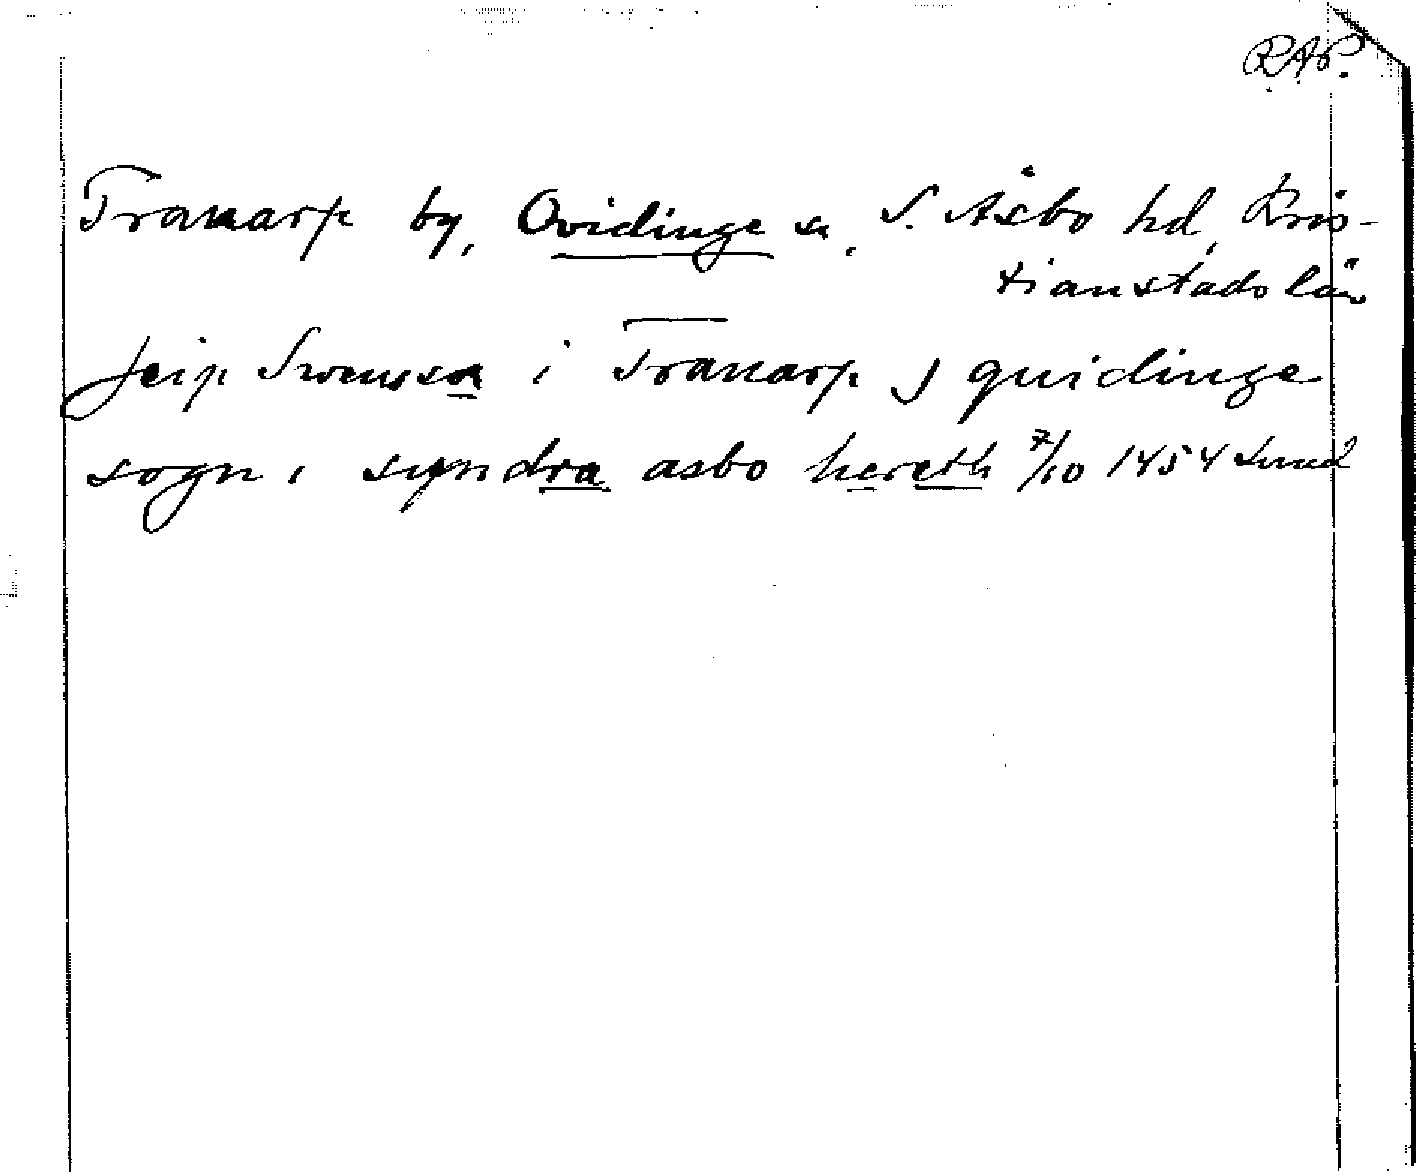 RAP.
Tranarp by, Qvidinge sn, S. Åsbo hd, Kris-
tianstads län
Jeip Swensson i Tranarp j quidinge
sogn i syndra asbo hereth 7/10 1454 Lund